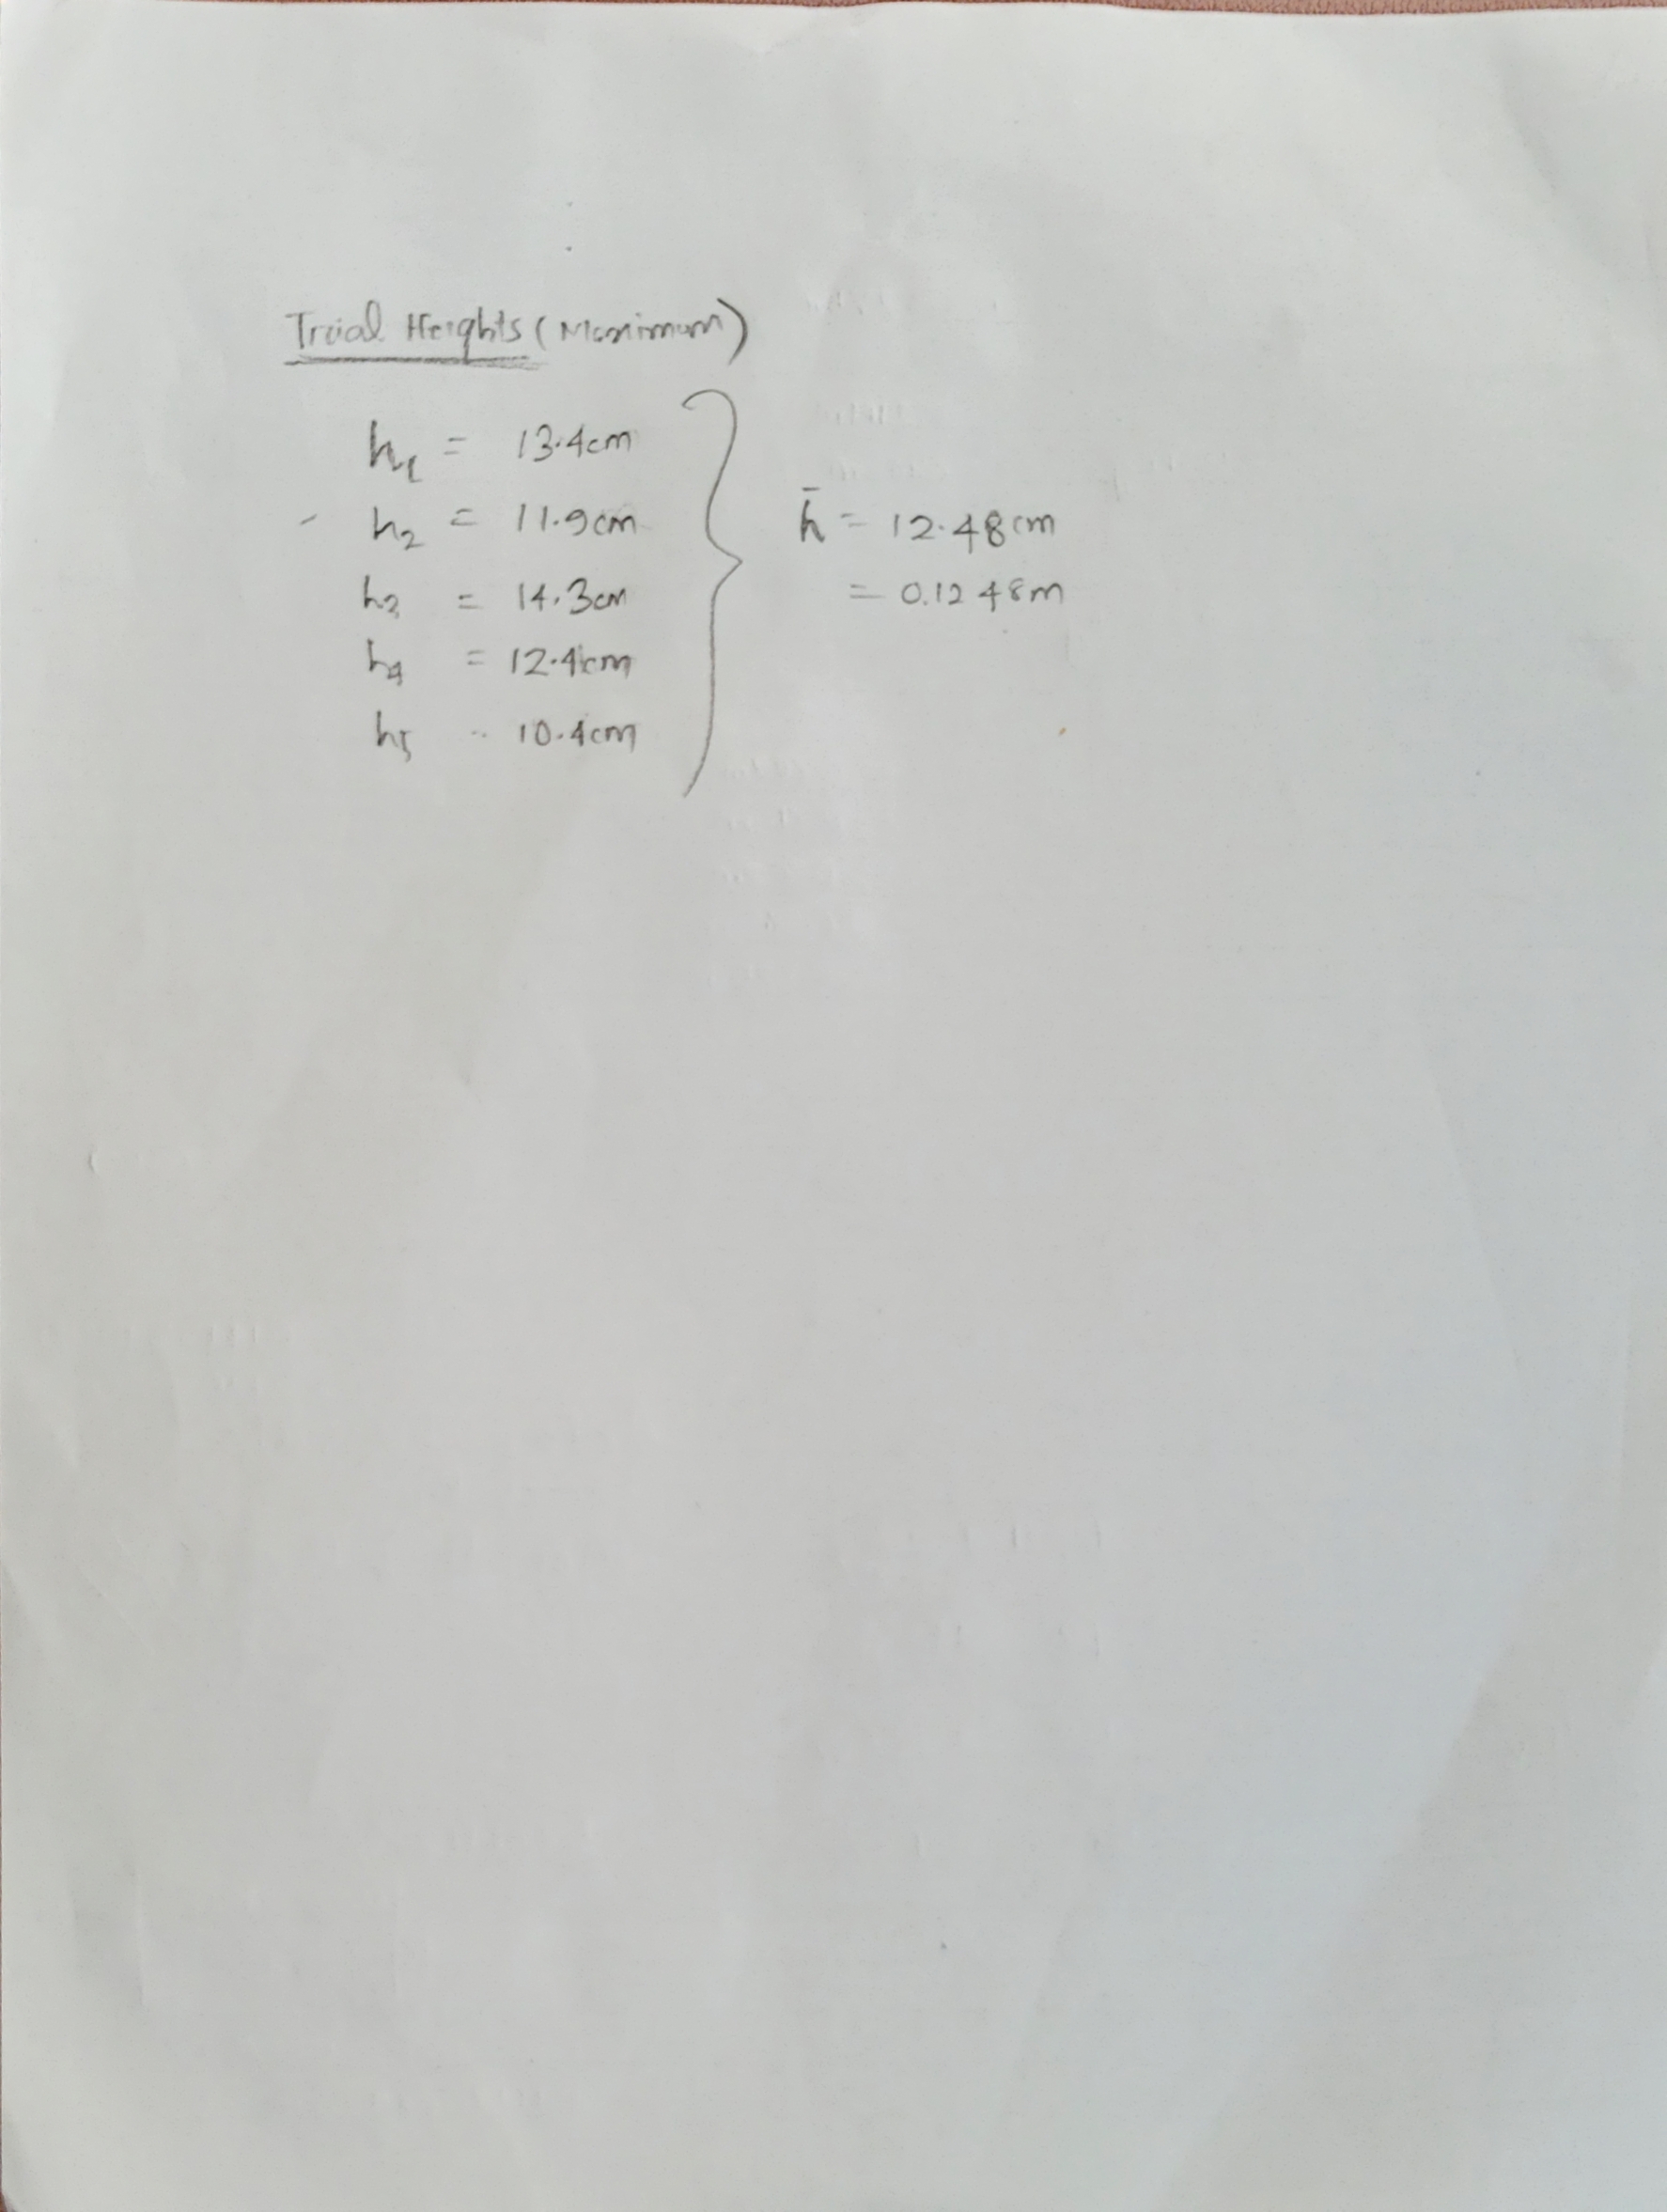 Trial Heights (Maximum)
h1 = 13.4cm
h2 = 11.9cm
h3 = 14.3cm
h4 = 12.4cm
h5 = 10.4cm
h̄ = 12.48cm
= 0.1248m